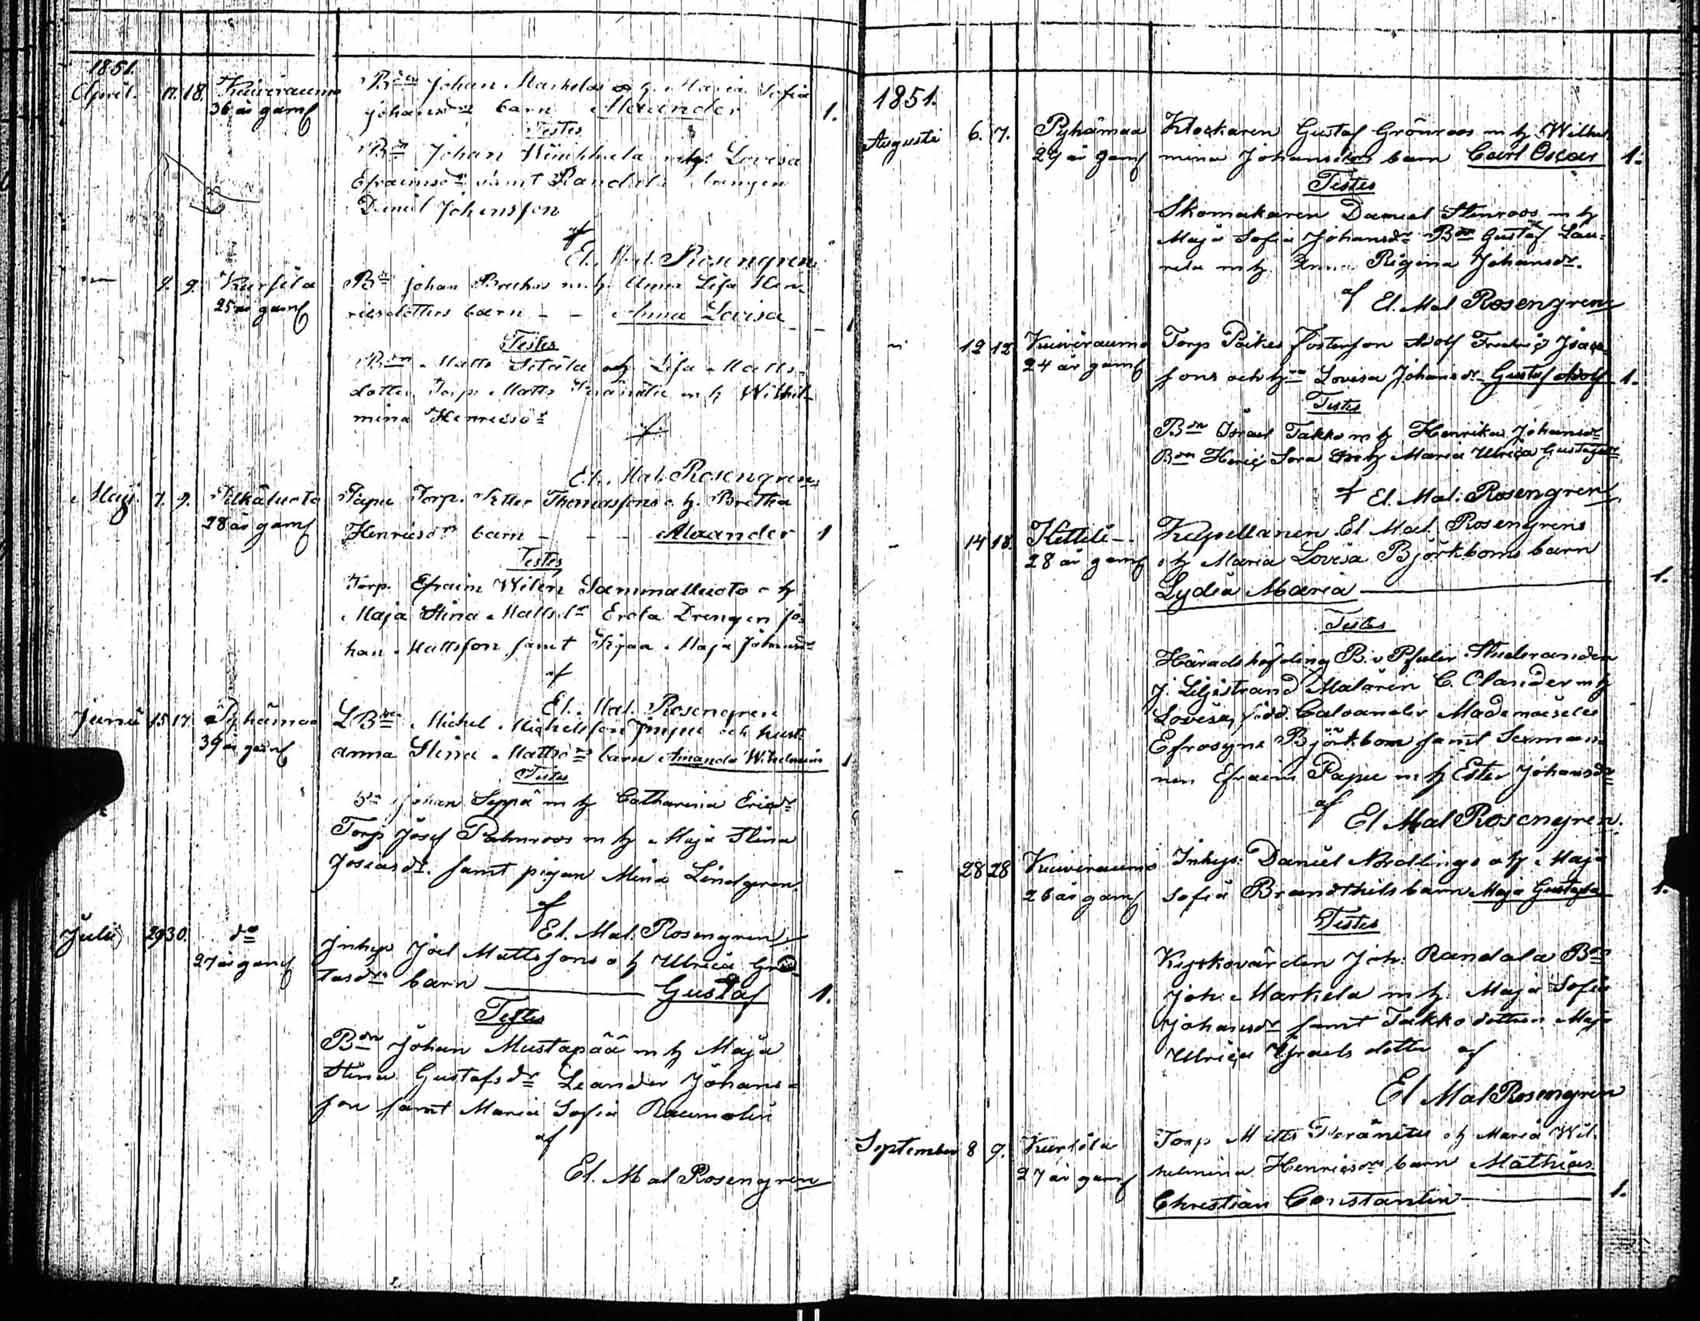 1851.
April. 17. 18. Kuiveraumo Bdn Johan Markelas o h Maria Sofia
36 år gamf Johansdrs barn Alexander 1.
Testes
Bdn Johan h Lovisa
Efraimsdr samt Randala drengen
Daniel Johansson
af
El. Mal. Rosengren
9. Kurfila Bdn Johan m h Anna Lisa Hen-
25 år gamf ricsdotters barn - - Anna Lovisa 1
Testes
Bdn Matts och Lisa Matts-
dotter Torp Matts m h Wilhel-
mina Henricsdr
af
El. Mal. Rosengren
Maij 7. 9. Papu Torp. Petter Thomassons o h Bretha
28 år gamf Henricsdrs barn - - - Alexander 1
Testes
Torp. Efraim Wilen Sammalluoto o h
Maja Stina Mattsdr Erola Drengen Jo-
han Mattsson samt Pigan Maja Johansdr
af
El. Mal. Rosengren
Junii 15 17. Pyhämaa LBdn Michel Michelsson och hust.
39 år gamf Anna Stina Mattsdrs barn Amanda Wilhelmina 1
Testes
Bdn Johan Seppä m h Catharina Ericsdr
Torp Josef Palmroos m h Maja Stina
Josefsdr. samt pigan Mina Lindgren
af
El. Mal. Rosengren
Julii 29 30. do Inhys Joel Mattssons o h Ulrica Gus-
27 år gamf tafsdrs barn — Gustaf 1.
Testes
Bdn Johan Mustapää m h Maja
Stina Gustafsdr Leander Johans-
son samt Maria Sofia Raumolin
af
El. Mal Rosengren
1851.
Augusti 6. 7. Pyhämaa Klockaren Gustaf Grönroos m h Wilhel-
29 år gamf mina Johansdrs barn Carl Oscar 1.
Testes
Skomakaren Daniel Stenroos m h
Maja Sofia Johansdr Bdn Gustaf Lau-
rela m h Anna Regina Johansdr.
af El. Mal Rosengren
12 12. Kuiveraumo Torp Fosterson Adolf Fredric Isacs-
24 år gamf sons och h Lovisa Johansdr Gustaf Adolf 1.
Testes
Bdn Israel Takko m h Henrika Johansdr
Bdn Henric Sora m h Maria Ulrica Gustafsdr
af El. Mal. Rosengren
14 18. Ketteli - Kapellanen El Mal. Rosengrens
28 år gamf o h Maria Lovisa Björkboms barn
Lydia Maria — 1.
Testes
Häradshöfding B. v Pfaler Studeranden
J. Liljestrand Målaren C. Olander m h
Lovisa, född Caloander Mademoiselle
Efrosyne Björkbom samt Sexman-
nen Efraim Papu m h Ester Johansdr
af
El Mal Rosengren.
28 28 Kuiveraumo Inhys. Daniel Nordlings o h Maja
26 år gamf Sofia Brandthils barn Maja Gustafva 1.
Testes
Kyrkovärden Joh. Randala Bdn
Joh. Markela m h. Maja Sofia
Johansdr samt Takko dottern Maja
Ulrica Israels dotter af
El Mal Rosengren
September 8 9. Kurfila Torp Matts o h Maria Wil-
27 år gamf helmina Henricsdrs barn Mathias
Christian Constantin — 1.